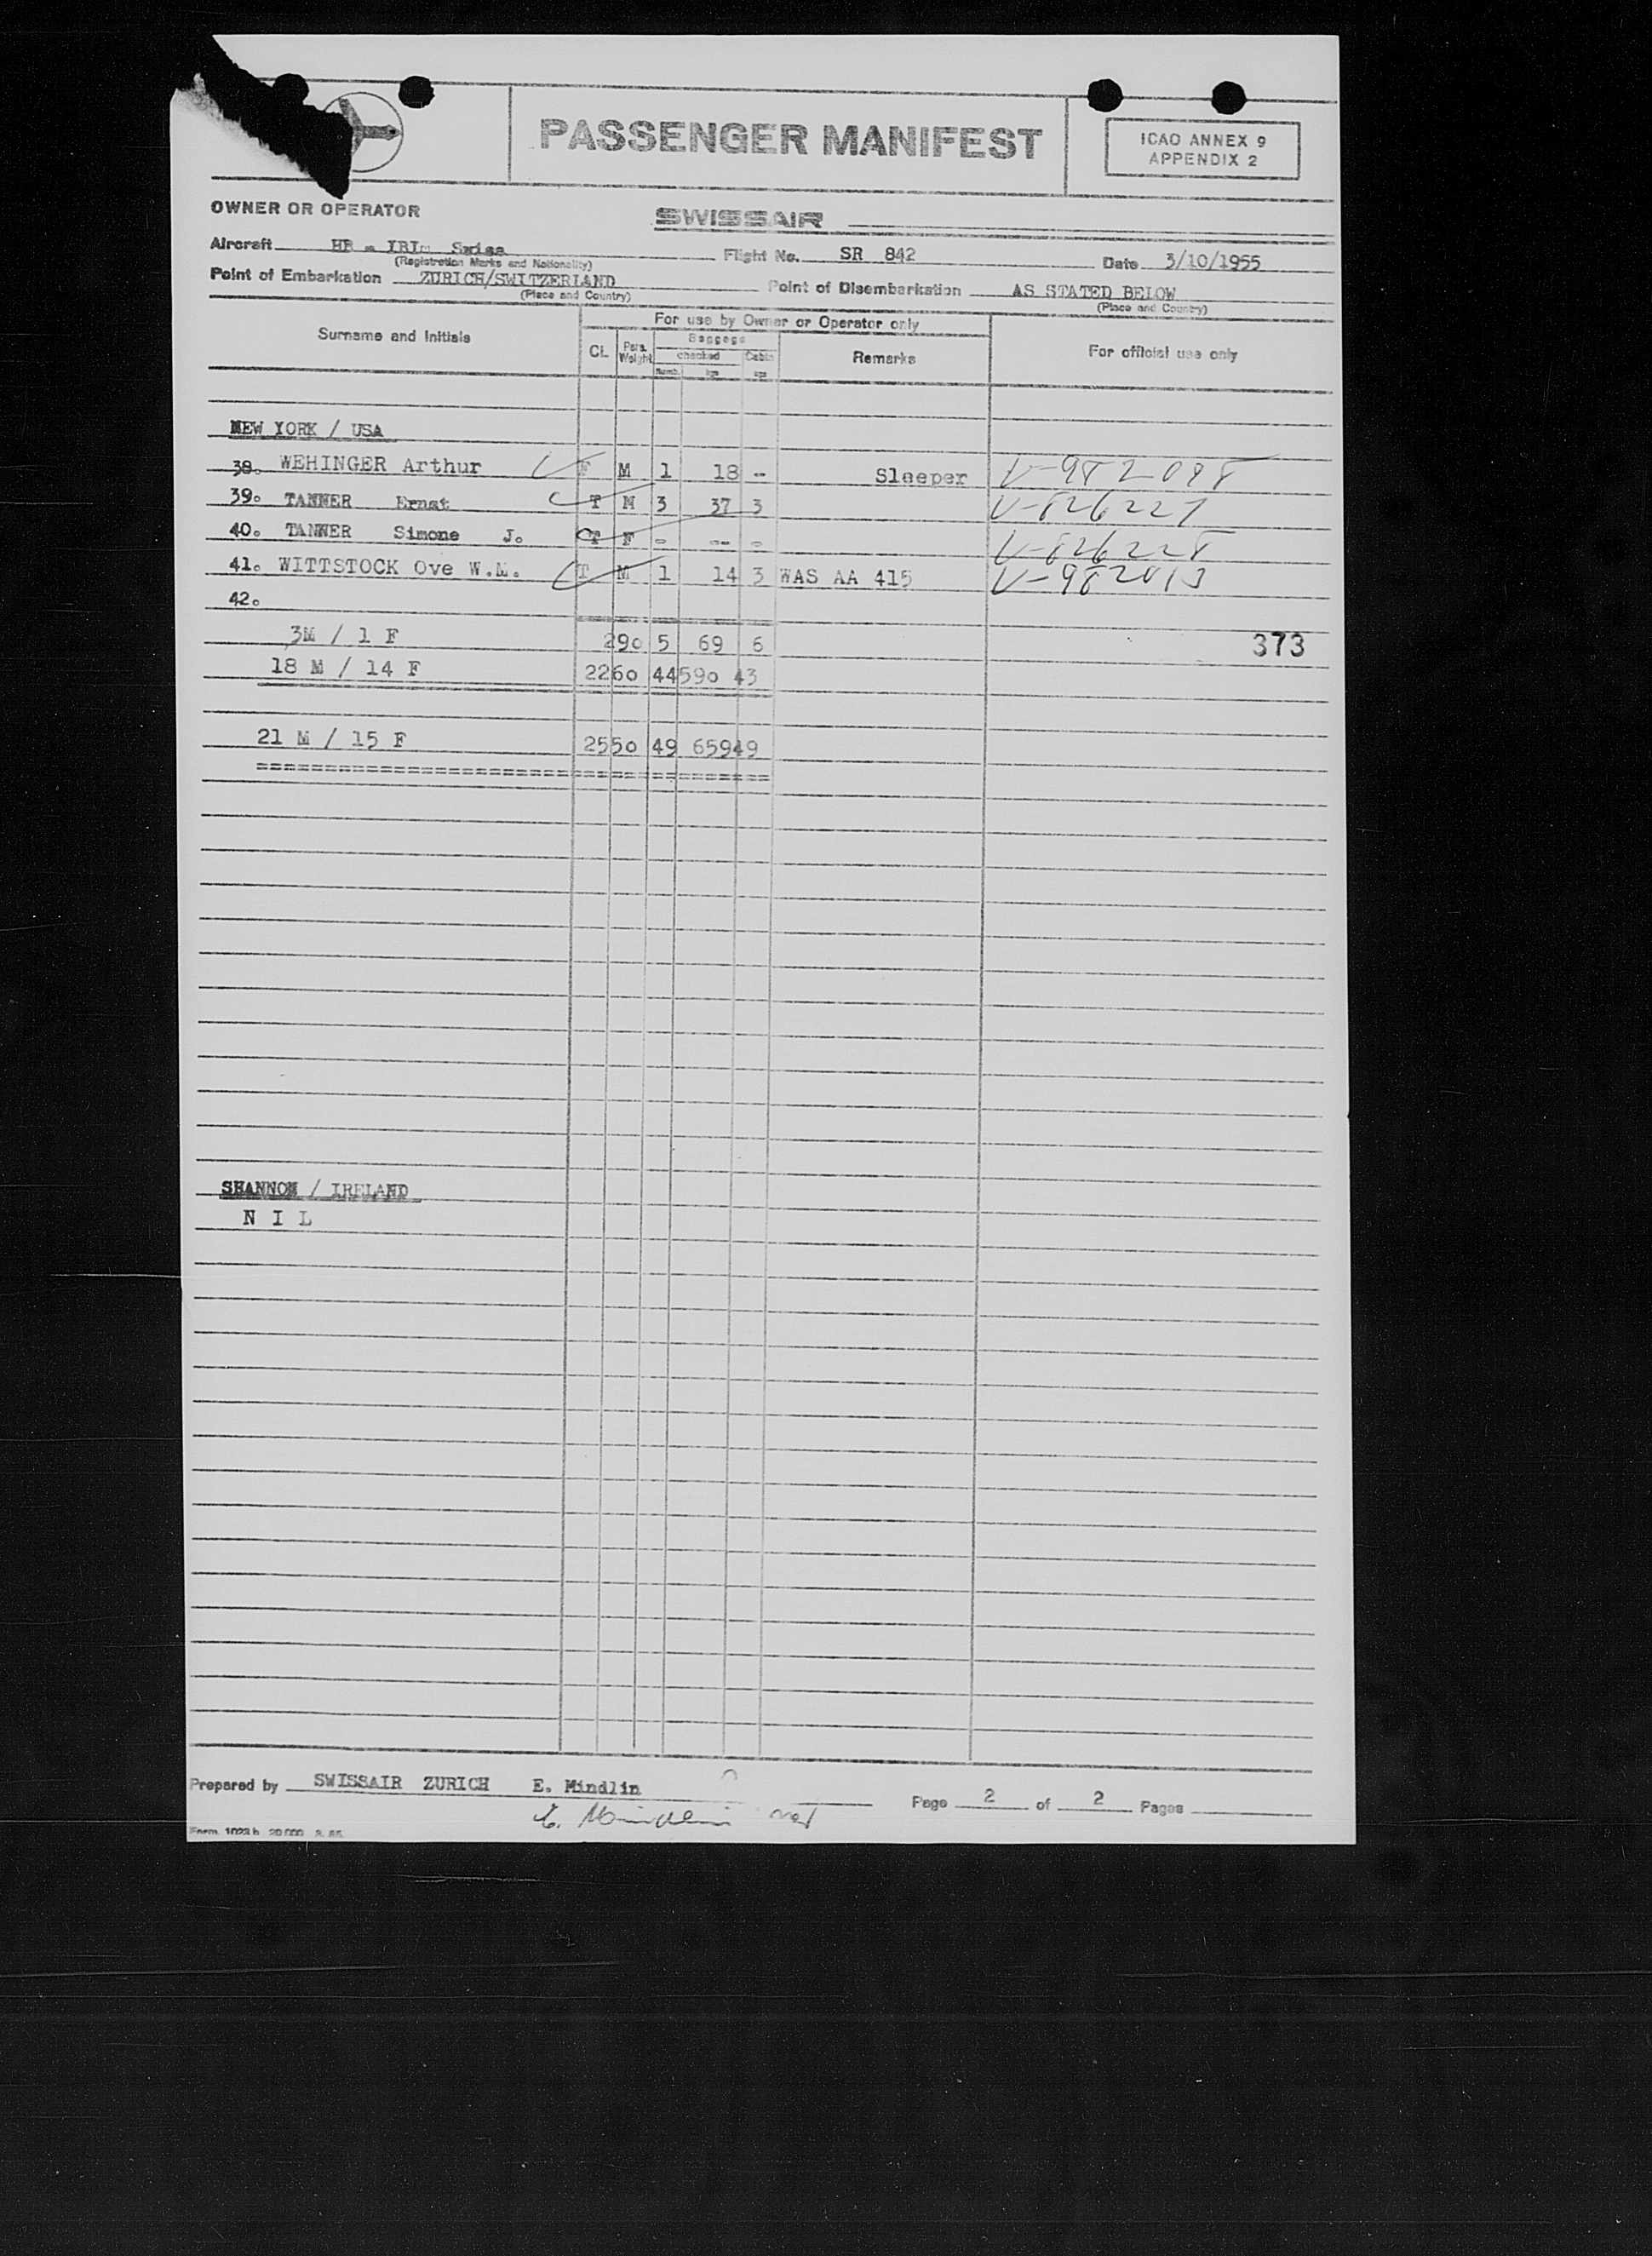 PASSENGER MANIFEST
ICAO ANNEX 9
APPENDIX 2
OWNER OR OPERATOR SWISSAIR
Aircraft HB - Swiss Flight No. SR 842 Date 3/10/1955
(Registration Marks and Nationality)
Point of Embarkation ZURICH/SWITZERLAND Point of Disembarkation AS STATED BELOW
(Place and Country) (Place and Country)
Surname and Initials For use by Owner or Operator only For official use only
Cl. Pass. Weight Baggage Remarks
checked Cabin
Numb. kgs kgs
NEW YORK / USA
38. WEHINGER Arthur F M 1 18 - Sleeper V-982098
39. TANNER Ernst T M 3 37 3 V-826227
40. TANNER Simone J. T F - -- - V-826228
41. WITTSTOCK Ove W.M. T M 1 14 3 WAS AA 415 V-982013
42.
3M / 1 F 290 5 69 6 373
18 M / 14 F 2260 44 590 43
21 M / 15 F 2550 49 659 49
SHANNON / IRELAND
N I L
Prepared by SWISSAIR ZURICH E. Mindlin Page 2 of 2 Pages
E. Mindlin
Form. 1023 b 20 000